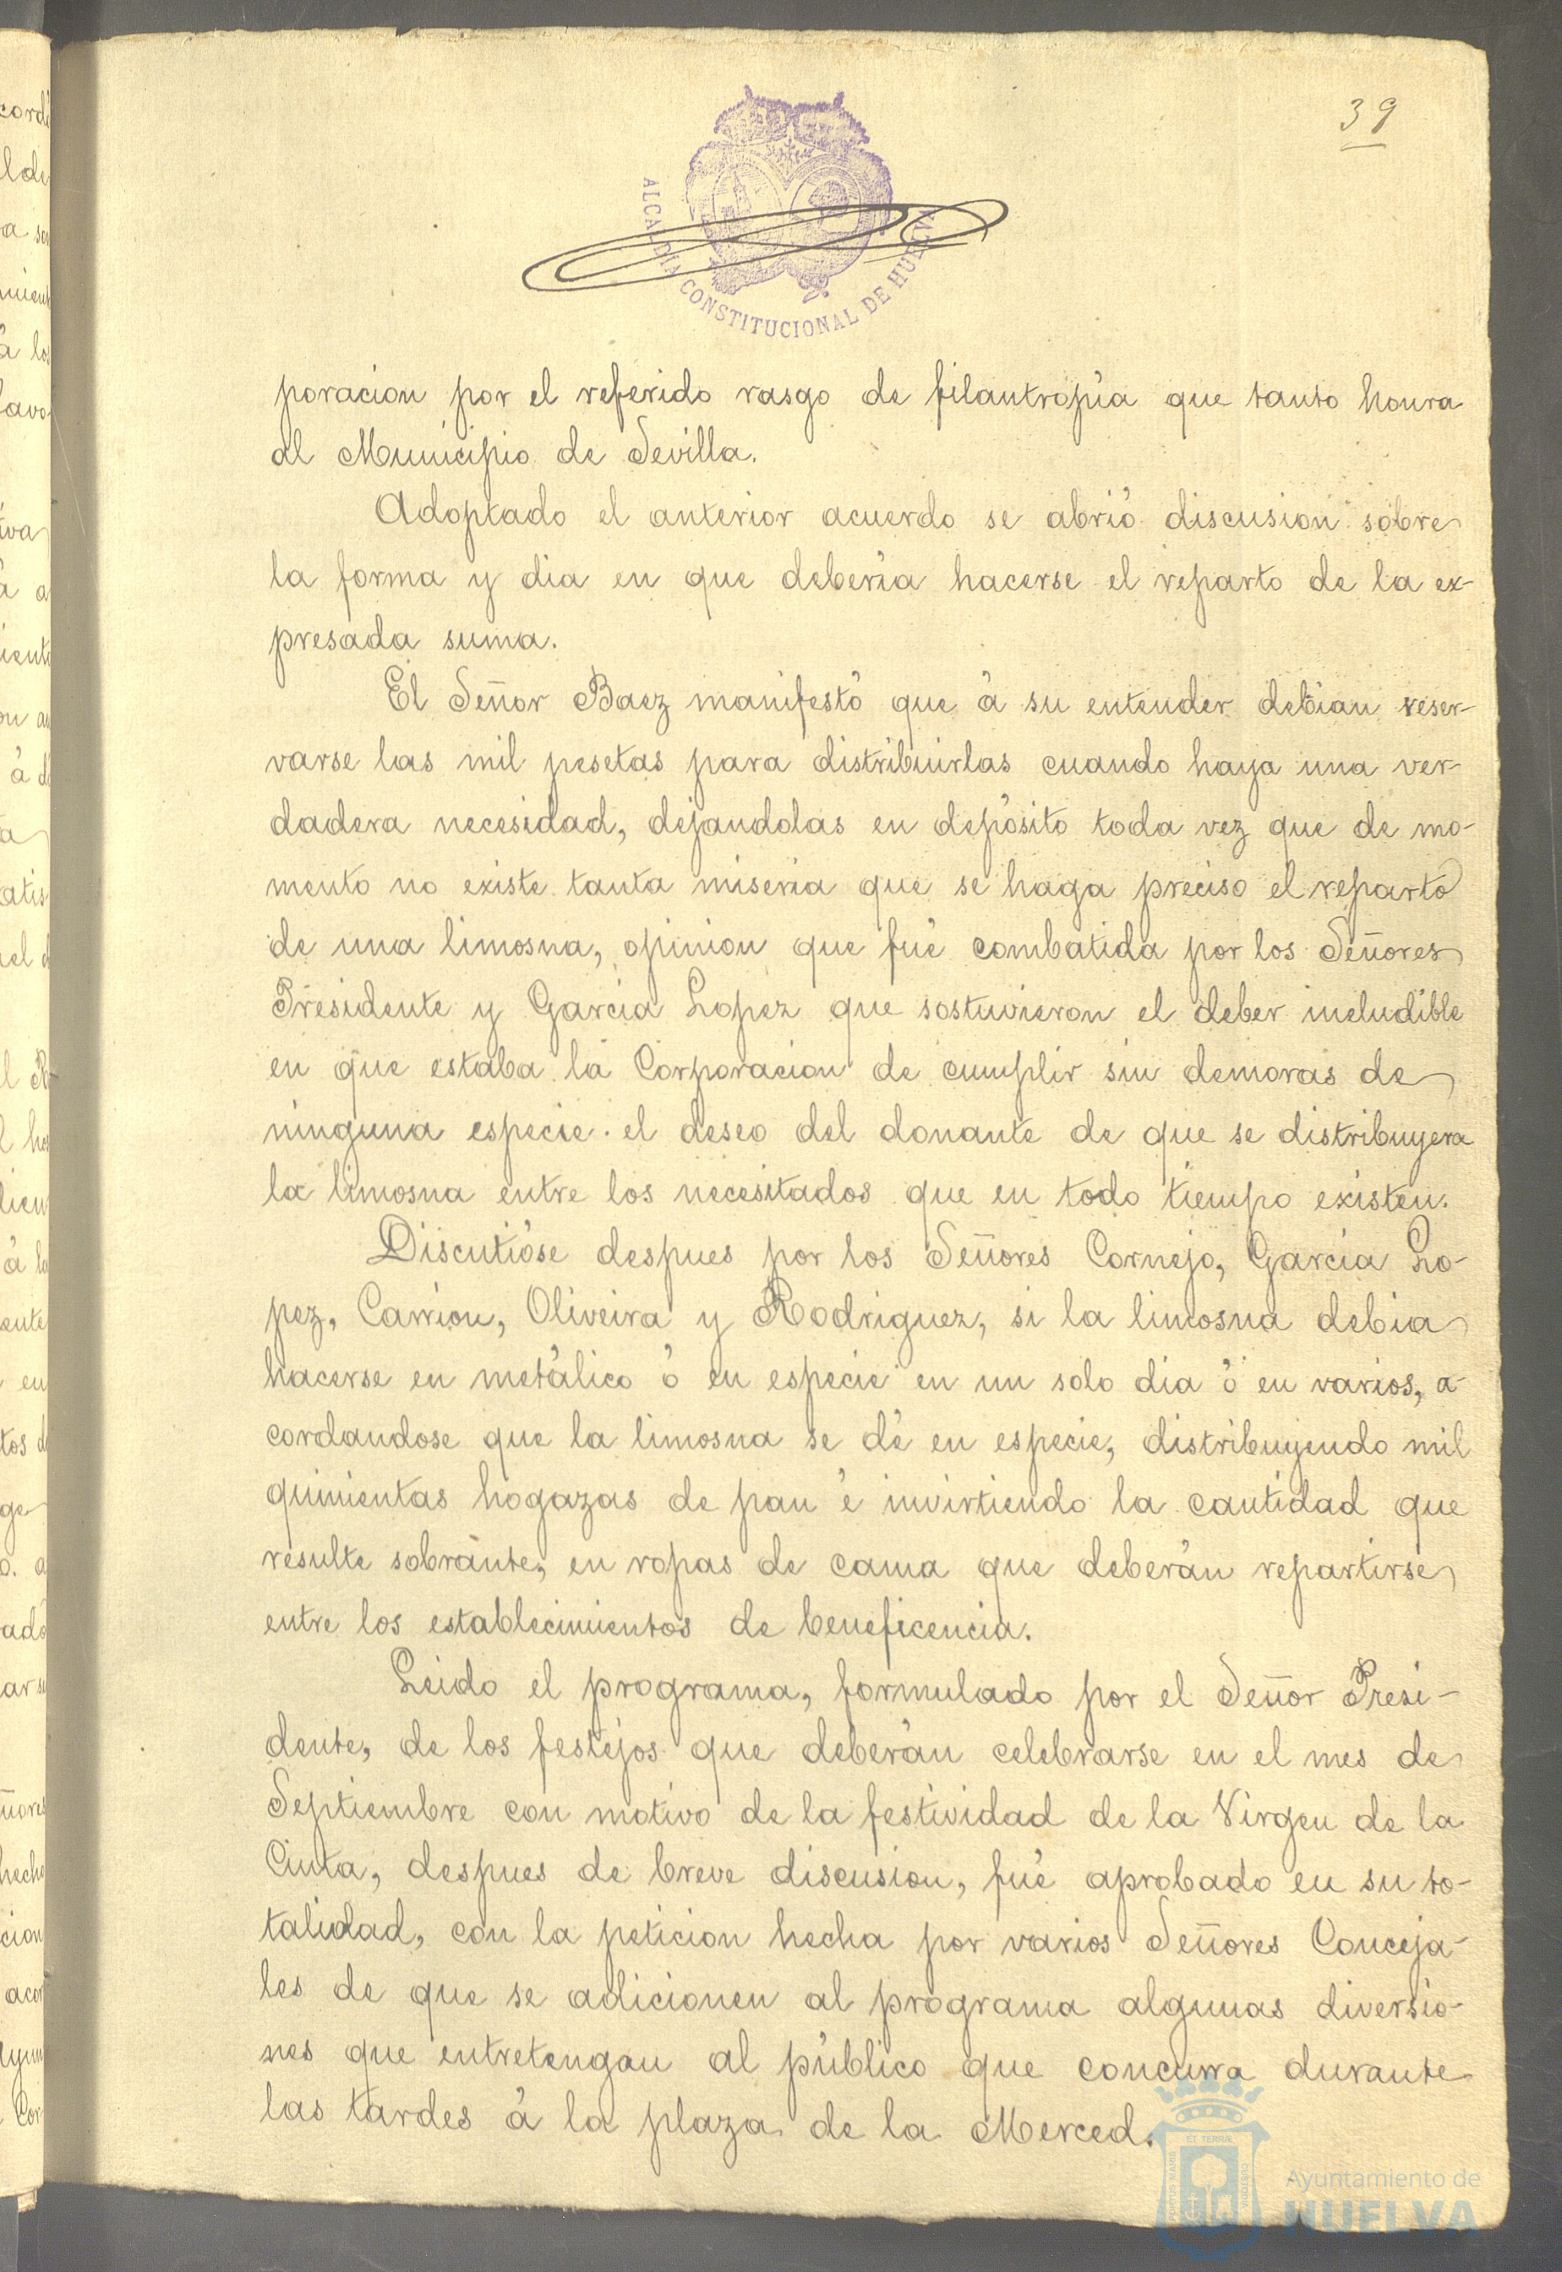 39
ALCALDIA CONSTITUCIONAL DE HUELVA
poracion por el referido rasgo de filantropía que tanto honra
al Municipio de Sevilla.
Adoptado el anterior acuerdo se abrió discusion sobre
la forma y dia en que debería hacerse el reparto de la ex-
presada suma.
El Señor Baez manifestó que á su entender debian reser-
varse las mil pesetas para distribuirlas cuando haya una ver-
dadera necesidad, dejandolas en depósito toda vez que de mo-
mento no existe tanta miseria que se haga preciso el reparto
de una limosna, opinion que fué combatida por los Señores
Presidente y García Lopez que sostuvieron el deber ineludible
en que estaba la Corporacion de cumplir sin demoras de
ninguna especie el deseo del donante de que se distribuyera
la limosna entre los necesitados que en todo tiempo existen.
Discutióse despues por los Señores Cornejo, García Lo-
pez, Carrion, Oliveira y Rodriguez, si la limosna debia
hacerse en metálico ó en especie en un solo dia ó en varios, a-
cordandose que la limosna se dé en especie, distribuyendo mil
quinientas hogazas de pan é invirtiendo la cantidad que
resulte sobrante, en ropas de cama que deberán repartirse
entre los establecimientos de beneficencia.
Leido el programa, formulado por el Señor Presi-
dente, de los festejos que deberán celebrarse en el mes de
Septiembre con motivo de la festividad de la Virgen de la
Cinta, despues de breve discusion, fué aprobado en su to-
talidad, con la peticion hecha por varios Señores Conceja-
les de que se adicionen al programa algunas diversio-
nes que entretengan al público que concurra durante
las tardes á la plaza de la Merced.
Ayuntamiento de
HUELVA